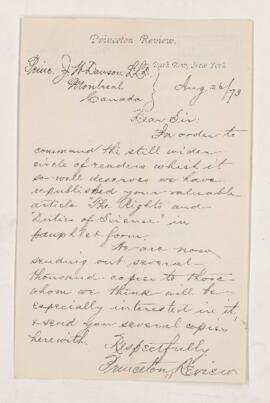 Princeton Review.
Park Row, New York
Princ. J W Dawson LLD.
Montreal
Canada
Aug 26/78
Dear Sir:
In order to
command the still wider
circle of readers which it
so well deserves we have
republished your valuable
article "The Rights and
Duties of Science" in
pamphlet form.
We are now
sending out several
thousand copies to those
whom we think will be
especially interested in it,
& send you several copies
herewith.
Respectfully
Princeton Review